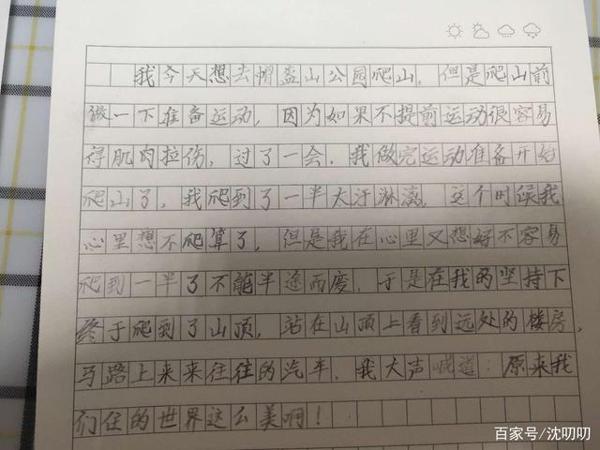 我今天想去帽盔山公园爬山，但是爬山前
做一下准备运动，因为如果不提前运动很容易
得肌肉拉伤，过了一会，我做完运动准备开始
爬山了，我爬到了一半大汗淋漓，这个时候我
心里想不爬算了，但是我在心里又想好不容易
爬到一半了不能半途而废，于是在我的坚持下
终于爬到了山顶，站在山顶上看到远处的楼房，
马路上来来往往的汽车，我大声喊道：原来我
们住的世界这么美啊！
百家号/沈叨叨